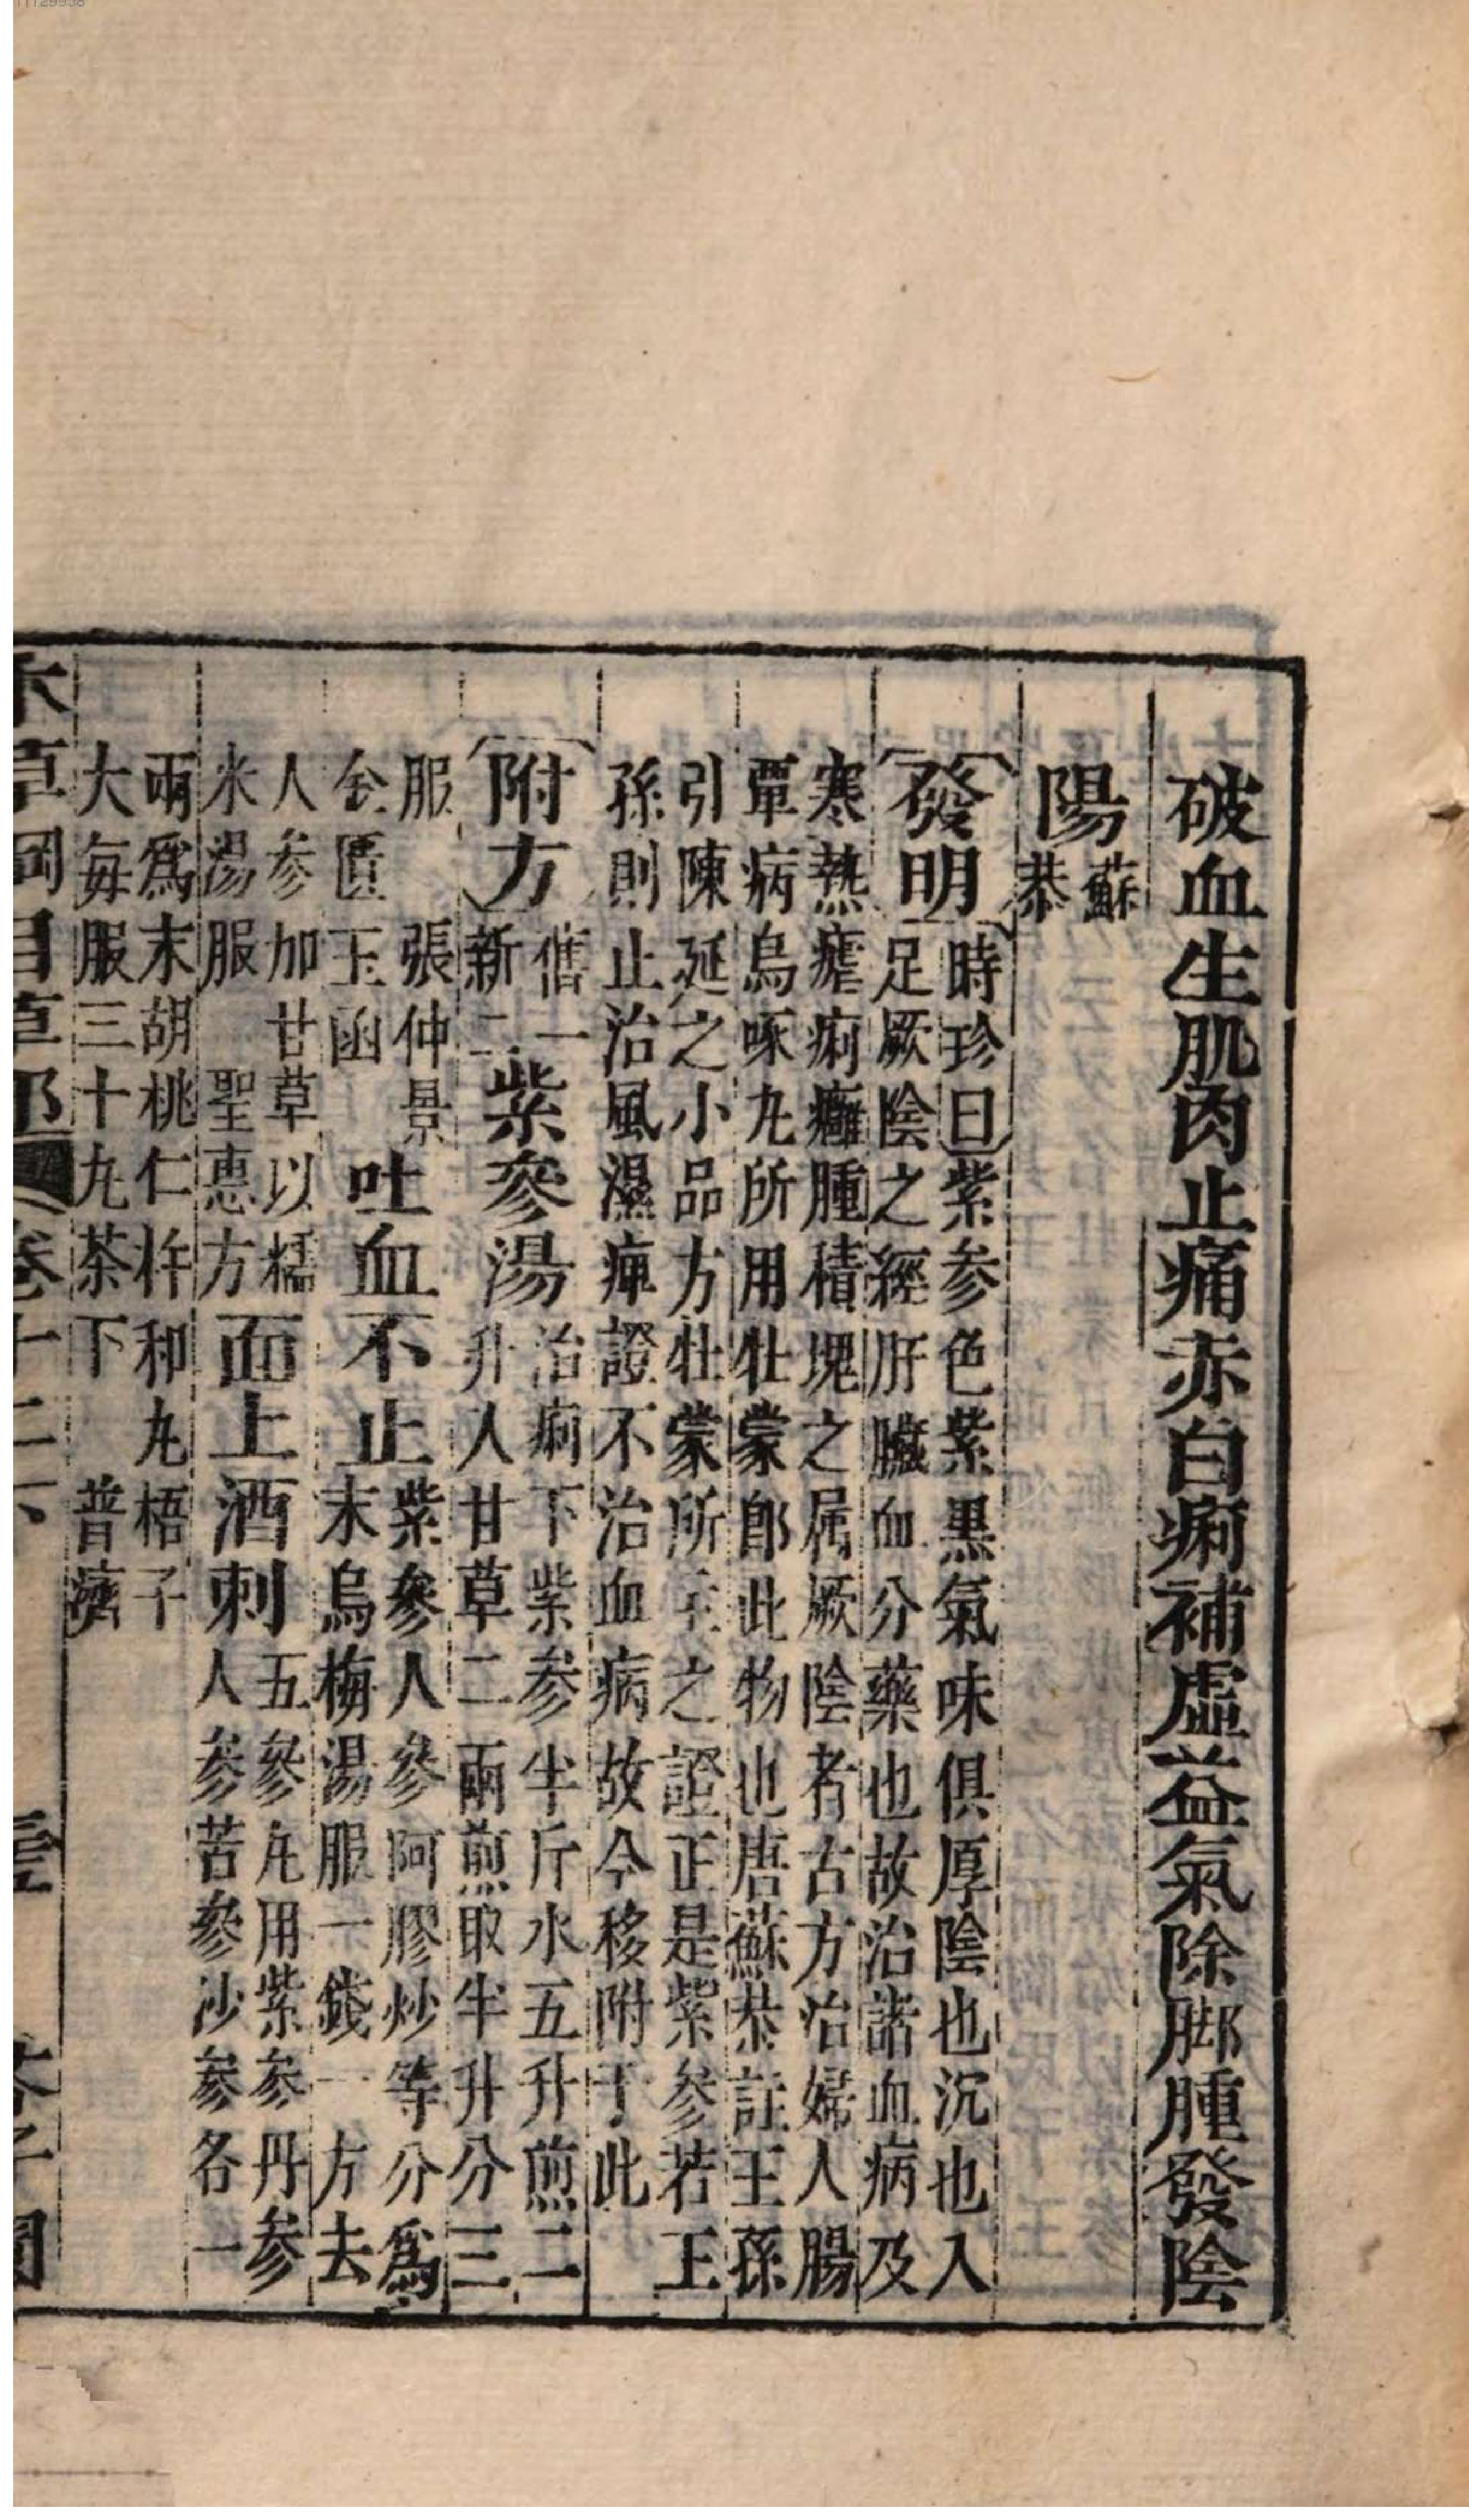 破血生肌肉止痛赤白痢補虛益氣除脚腫發陰
陽蘇
恭
發明時珍曰紫参色紫黒氣味俱厚陰也沉也入
足厥陰之經肝臟血分藥也故治諸血病及
寒熱瘧痢癰腫積塊之属厥陰者古方治婦人腸
覃病烏啄丸所用牡蒙即此物也唐蘇恭註王孫
引陳延之小品方牡蒙所主之證正是紫参若王
孫則止治風濕痺證不治血病故今移附于此
附方舊一
新二
紫參湯治痢下紫参半斤水五升煎二
升入甘草二兩煎取半升分三
服 張仲景
金匱玉函
吐血不止紫參人參阿膠炒等分爲
末烏梅湯服一錢一方去
人参加甘草以糯
米湯服 聖惠方
面上酒刺五參丸用紫参丹参
人參苦參沙参各一
兩爲末胡桃仁杵和丸梧子
大毎服三十丸茶下 普濟